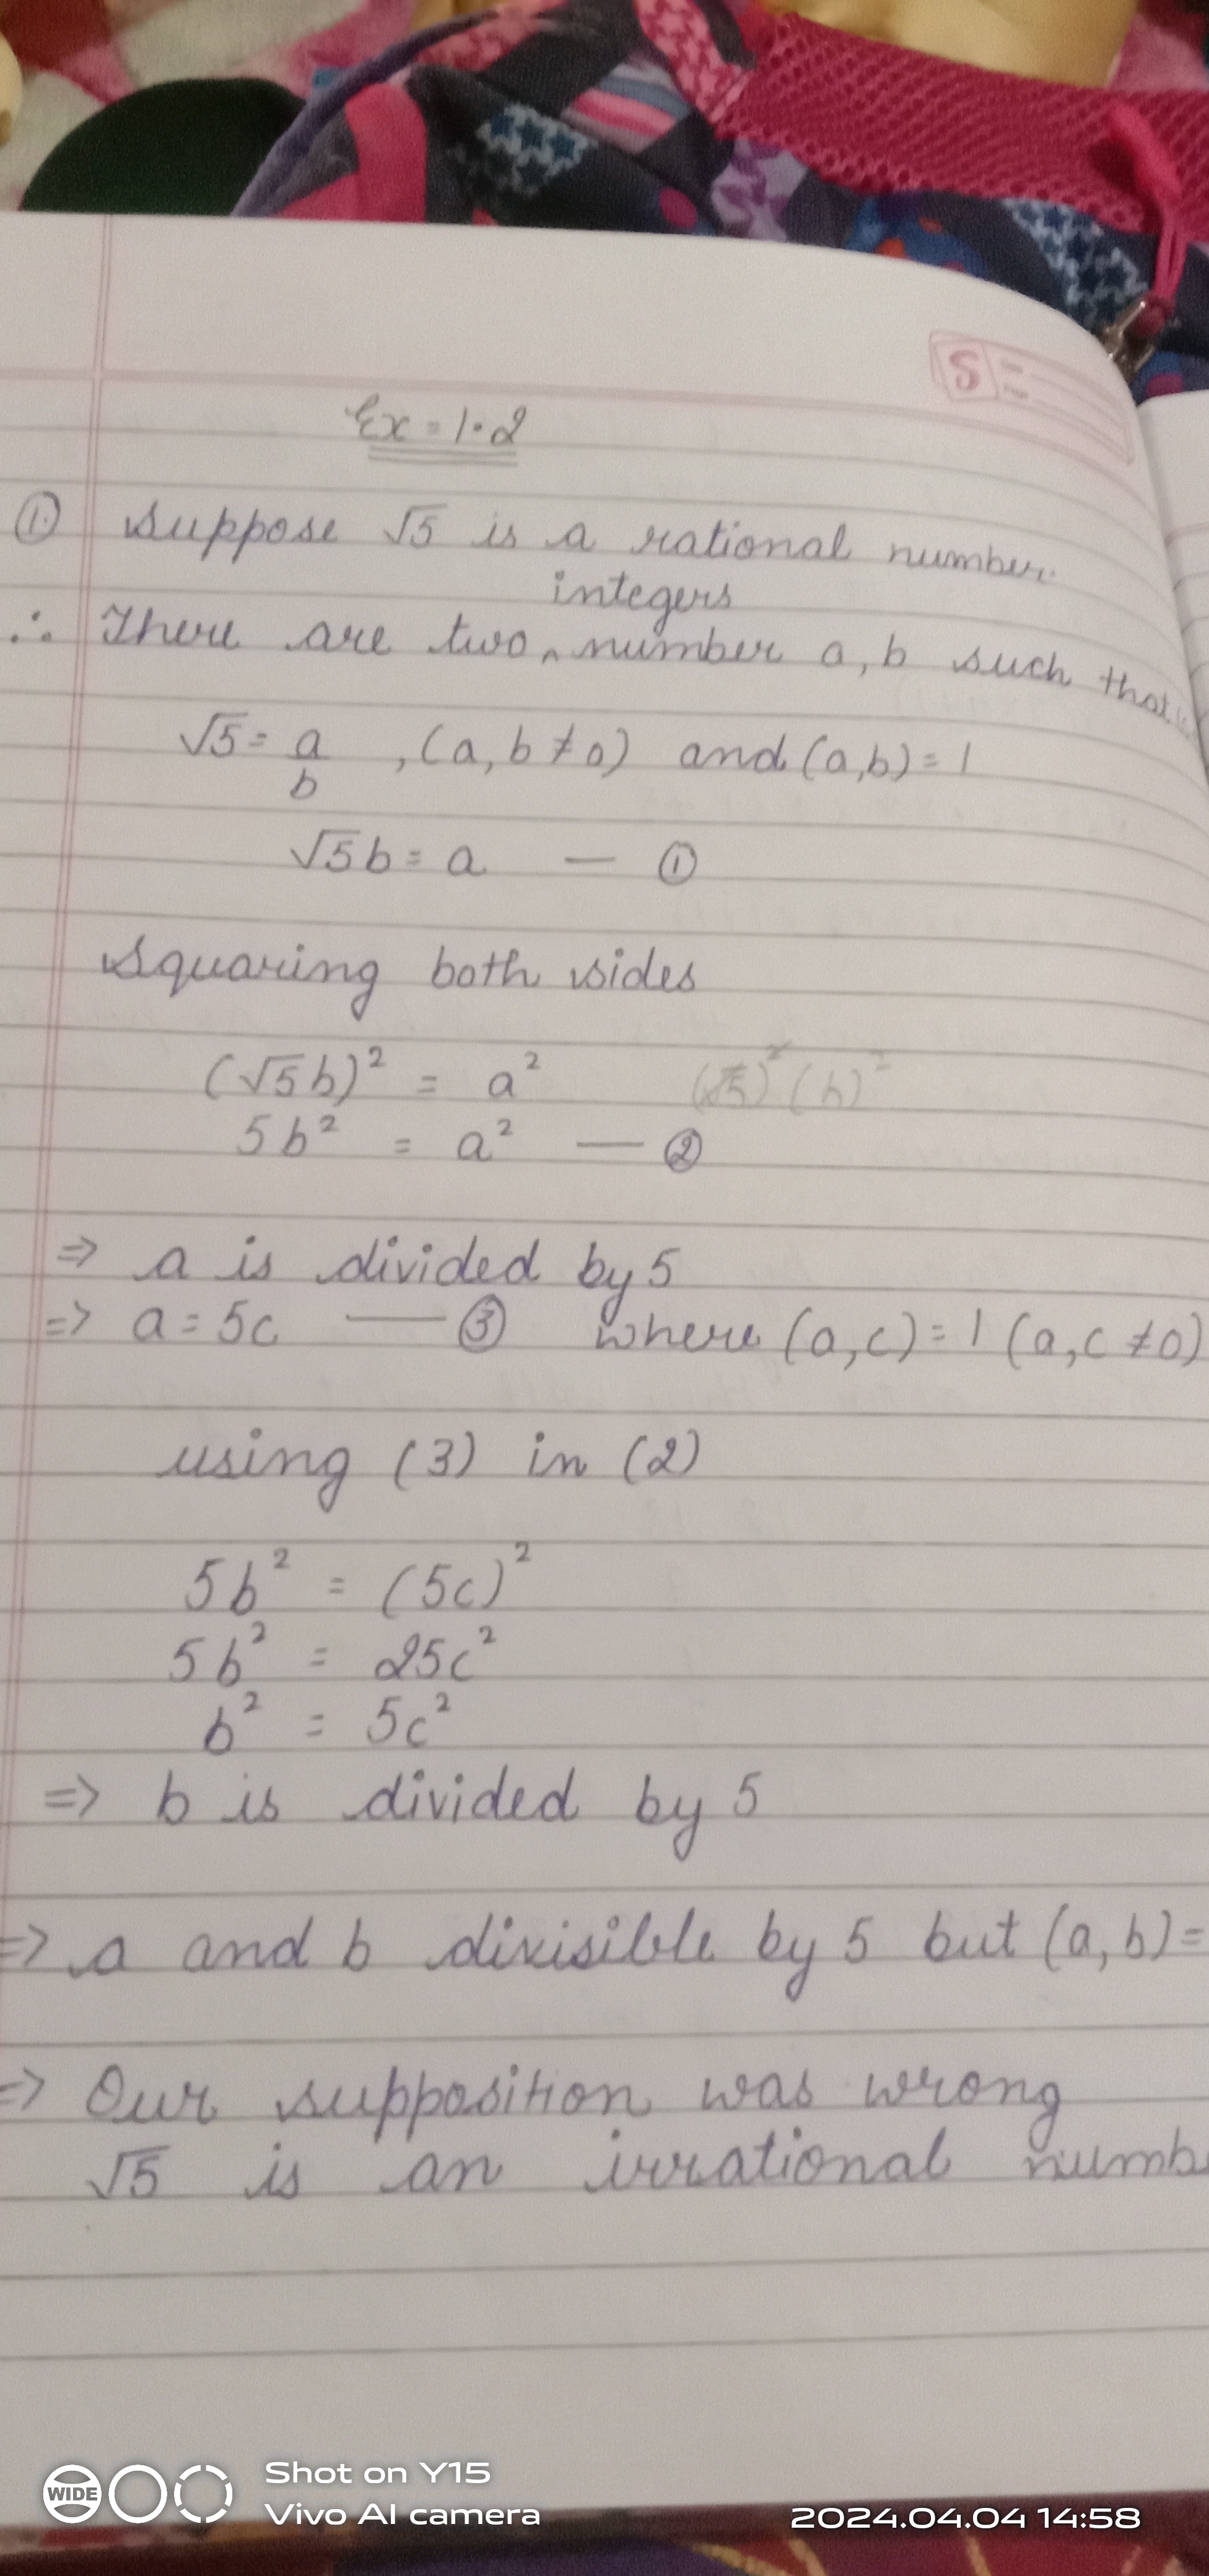 Ex = 1.2
S
① Suppose √5 is a rational number.
integers
∴ There are two ‸ number a, b such that
√5 = a/b , (a, b ≠ 0) and (a,b) = 1
√5b = a — ①
Squaring both sides
(√5b)² = a² (√5)² (b)²
5b² = a² — ②
⇒ a is divided by 5
⇒ a = 5c — ③ where (a,c) = 1 (a,c ≠ 0)
using (3) in (2)
5b² = (5c)²
5b² = 25c²
b² = 5c²
⇒ b is divided by 5
⇒ a and b divisible by 5 but (a,b) =
⇒ Our supposition was wrong
√5 is an irrational numb
WIDE
Shot on Y15
Vivo AI camera
2024.04.04 14:58